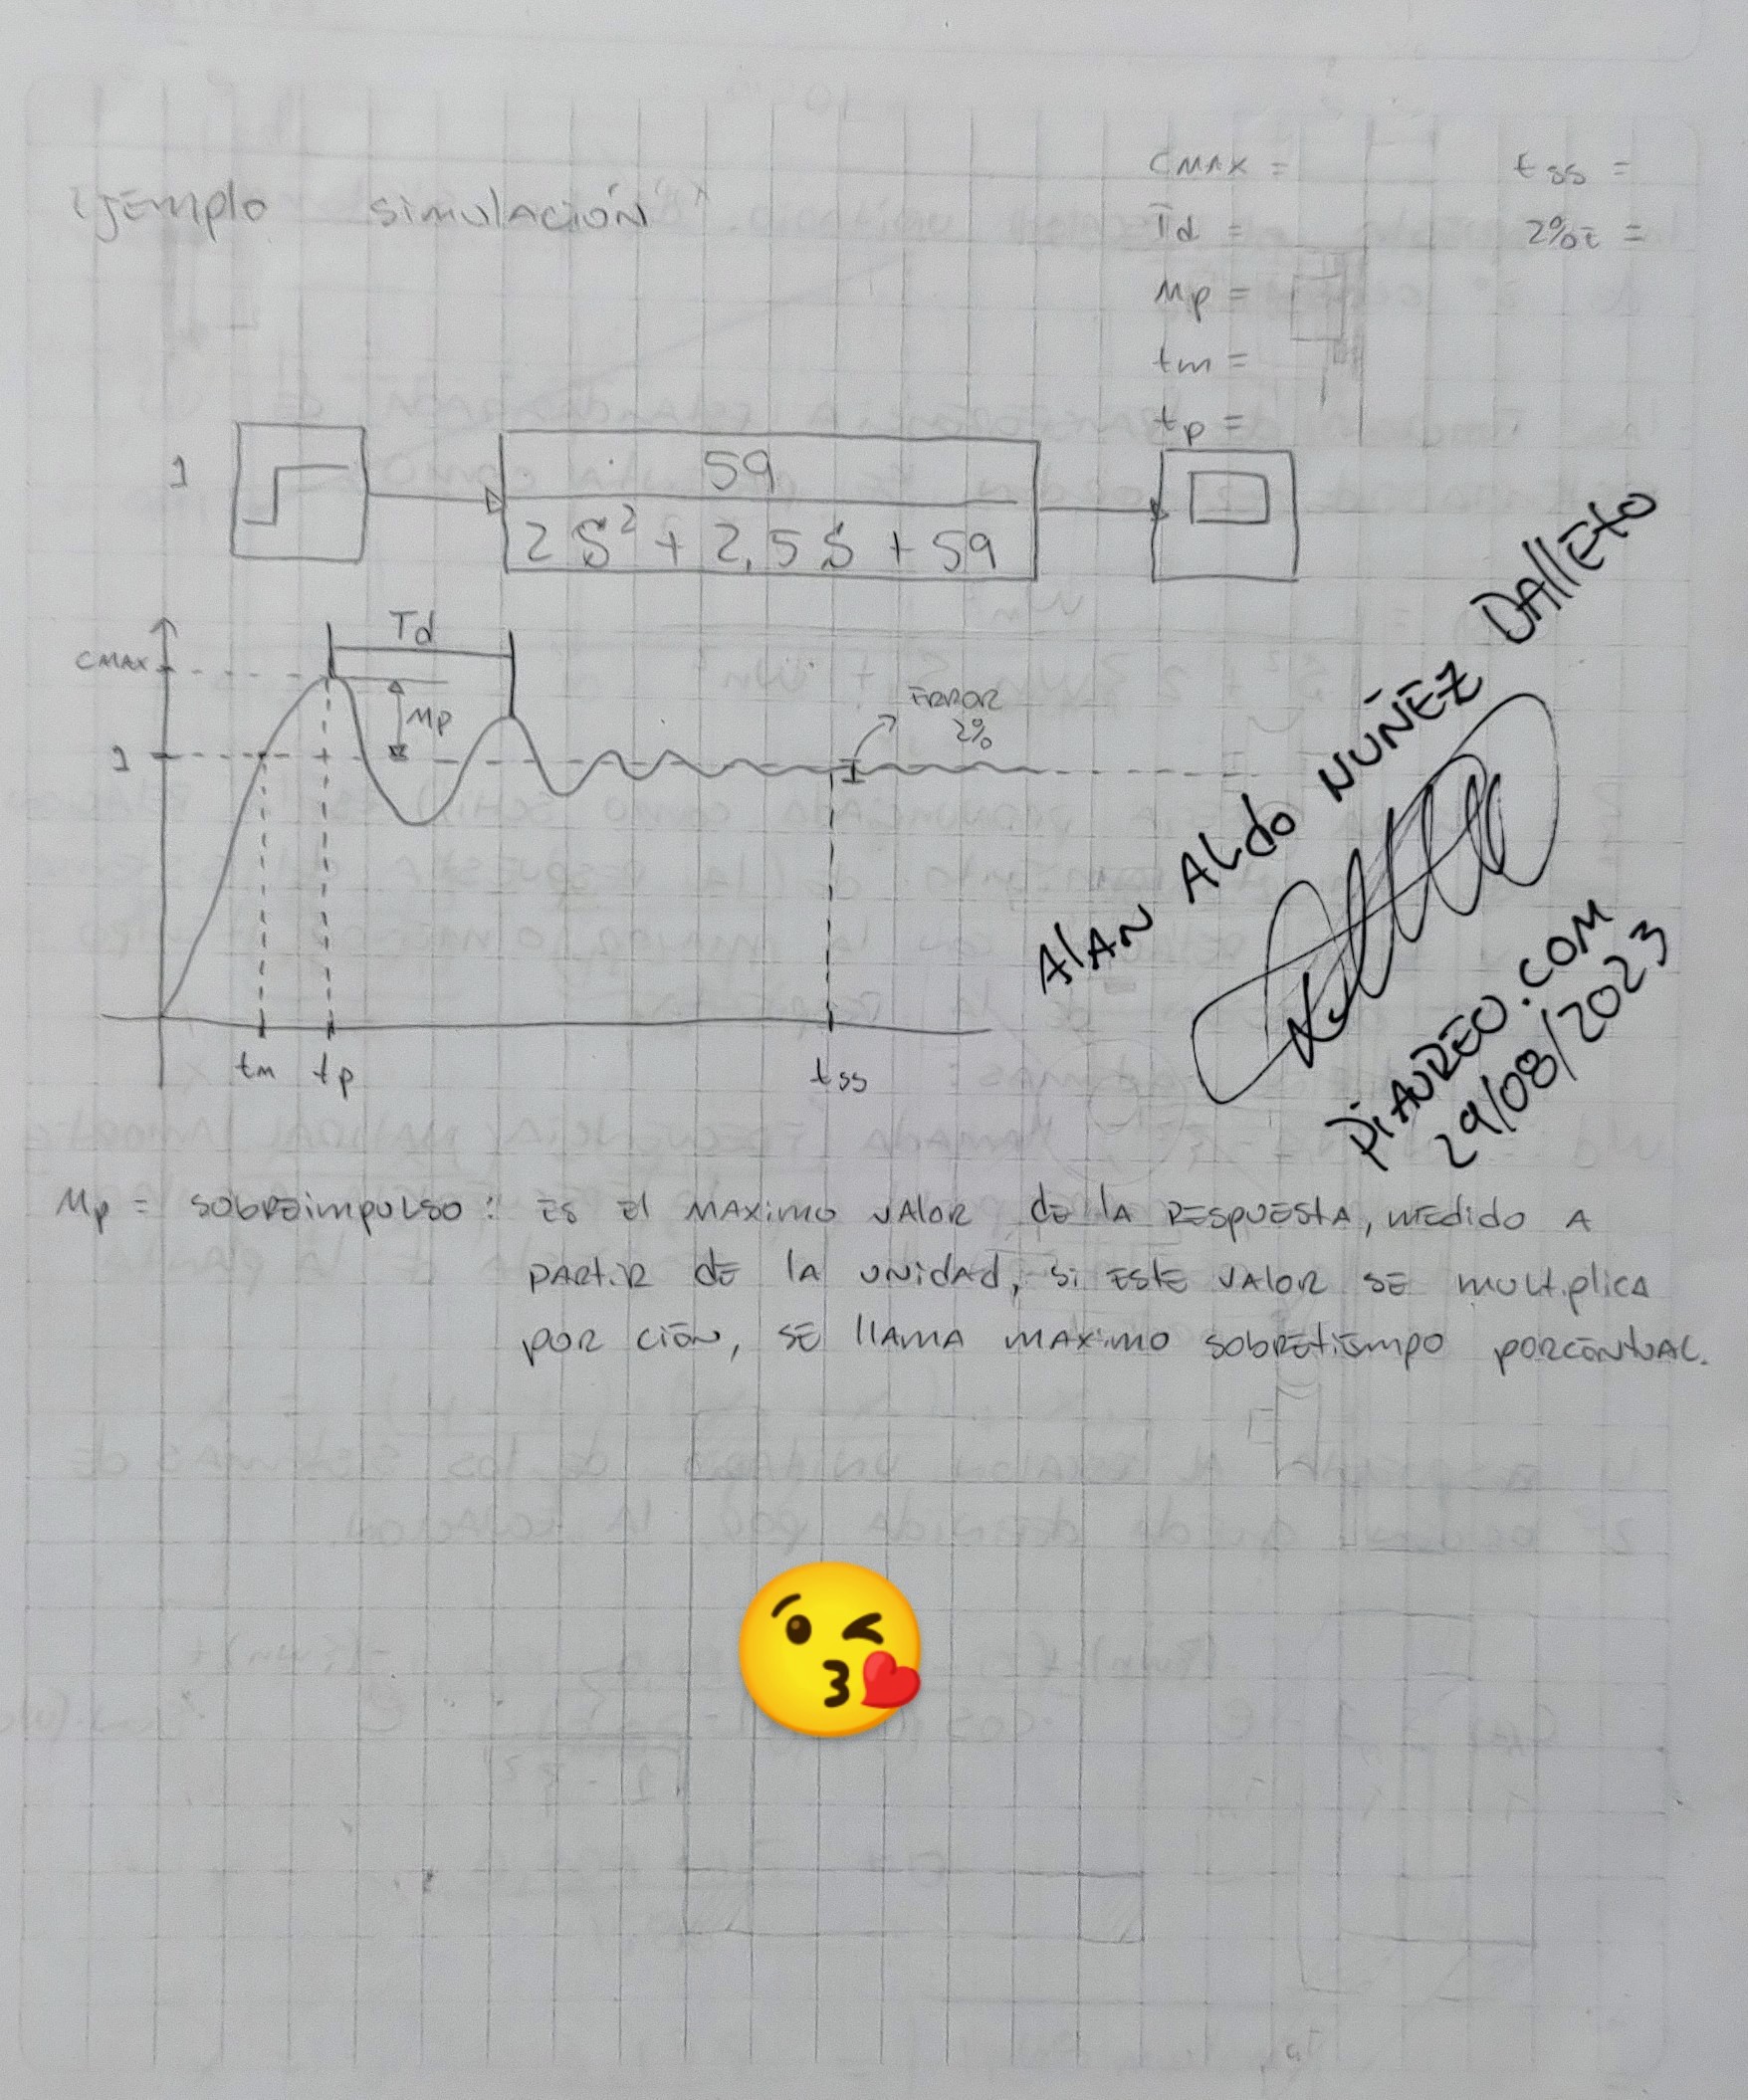 Ejemplo simulación
CMAX =
Td =
Mp =
tm =
tp =
tss =
2%E =
1
59
2 S² + 2,5 S + 59
Td
CMAX
Mp
ERROR
2%
1
tm
tp
tss
AlAN ALdo NUÑEZ DAllEto
PiAUREO.COM
29/08/2023
Mp = sobreimpulso: Es El maximo valor de la respuesta, medido a
partir de la unidad, si este valor se multiplica
por cien, se llama maximo sobretiempo porcentual.